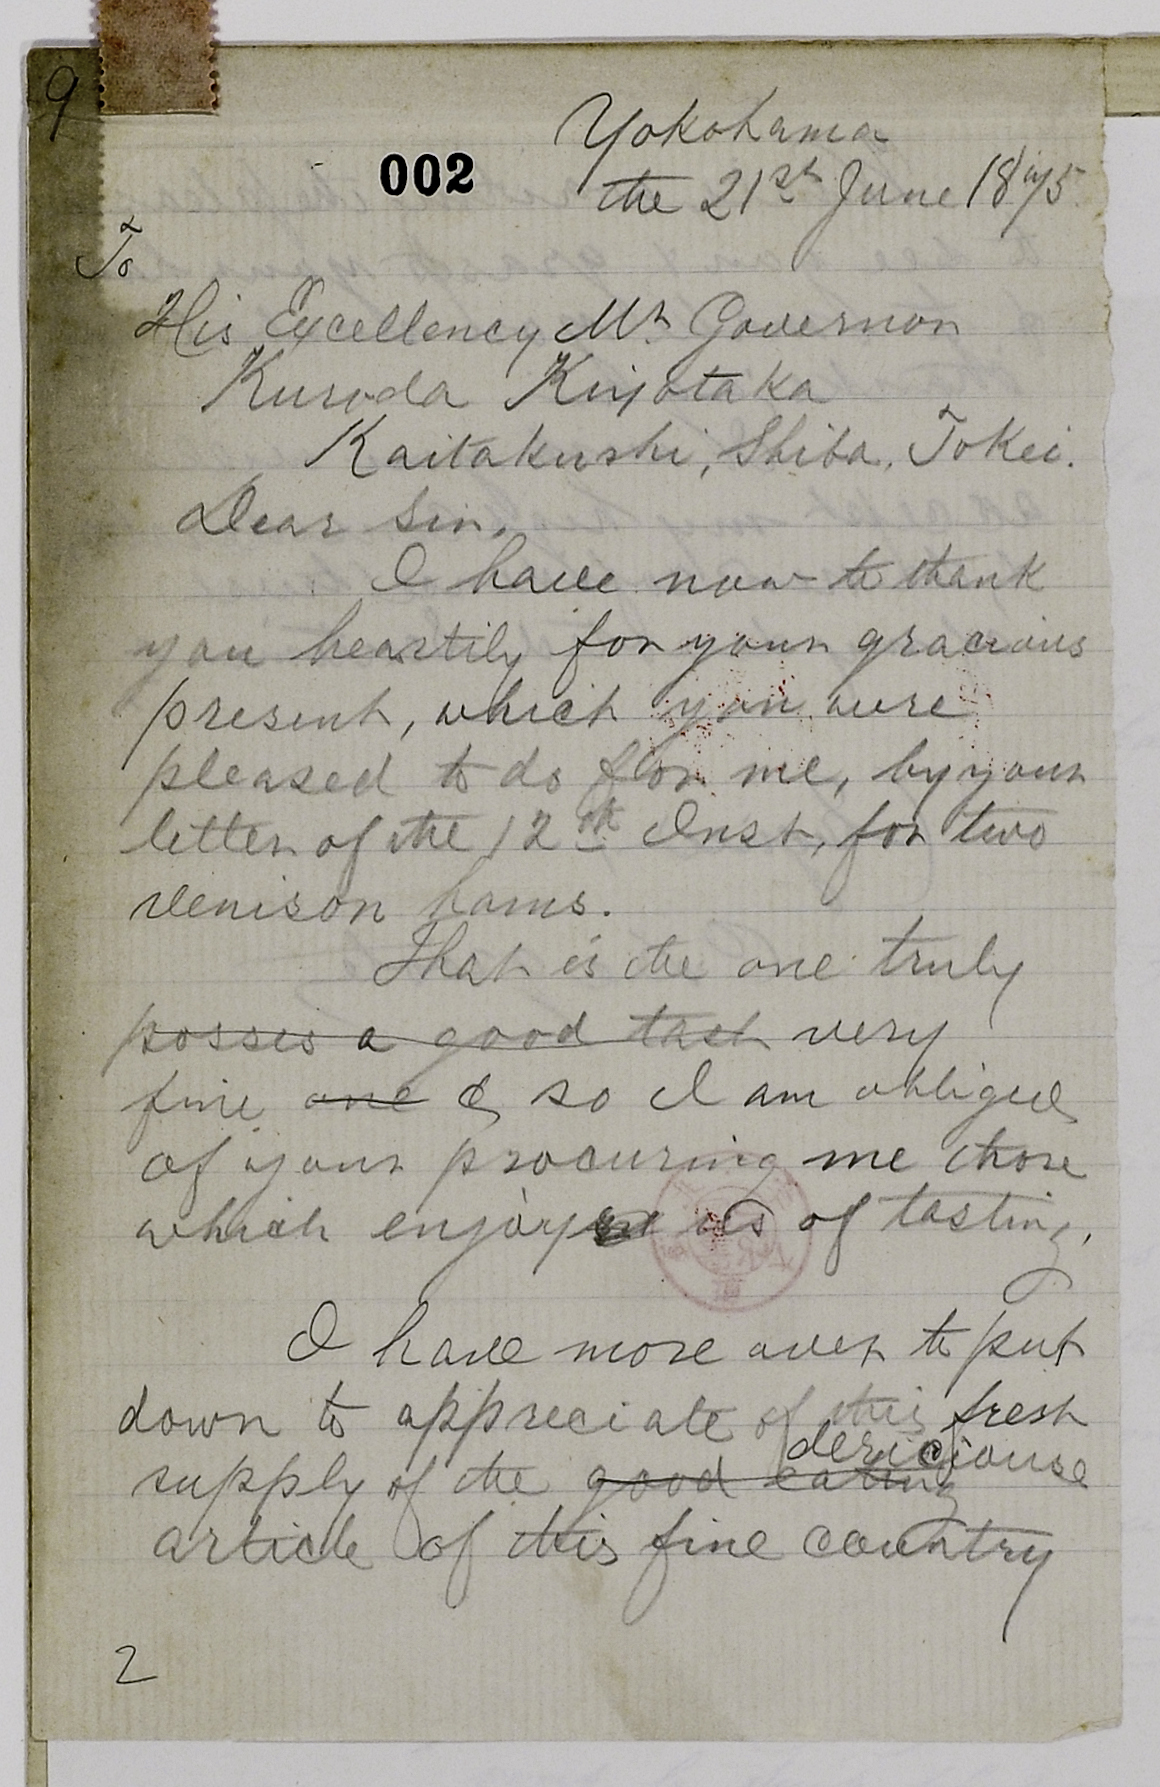 9
002
Yokohama
the 21st June 1875.
To
His Excellency Mr. Governor
Kuroda Kiyotaka
Kaitakushi, Shiba, Tokei.
Dear Sir,
I have now to thank
you heartily for your gracious
present, which you were
pleased to do for me, by your
letter of the 12th Inst, for two
venison hams.
That is the one truly
posses a good tast very
fine one & so I am obliged
of your procuring me those
which enjoy us of tasting.
I have more over to put
down to appreciate of this fresh
dericiouse
supply of the good eating
article of this fine country
2